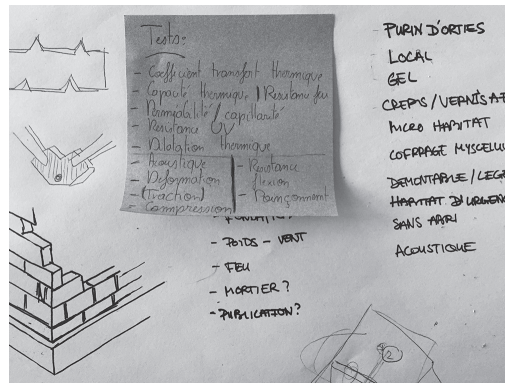 Tests:
- Coefficient transfert thermique
- Capacité thermique / Résistance feu
- Perméabilité / capillarité
- Résistance UV
- Dilatation thermique
- Acoustique
- Déformation
- (Traction)
- Compression
- Résistance
flexion
- Poinçonnement
- POIDS - VENT
- FEU
- MORTIER ?
- PUBLICATION ?
- PURIN D'ORTIES
LOCAL
GEL
CREPIS / VERNIS
MICRO HABITAT
COFFRAGE
DEMONTABLE /
HABITAT D'URGENC
SANS ABRI
ACOUSTIQUE
2